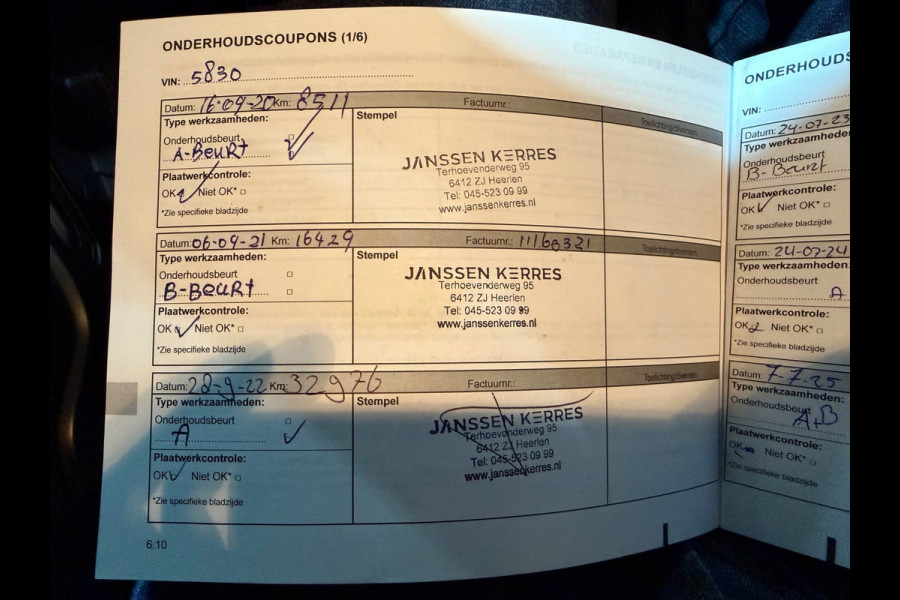 ONDERHOUDSCOUPONS (1/6)
VIN: 5830
Datum: 16-09-20 Km: 8511 Factuurnr.: Toelichting/diversen
Type werkzaamheden: Stempel
Onderhoudsbeurt
A-Beurt
Plaatwerkcontrole:
OK Niet OK*
*Zie specifieke bladzijde
JANSSEN KERRES
Terhoevenderweg 95
6412 ZJ Heerlen
Tel: 045-523 09 99
www.janssenkerres.nl
Datum: 06-09-21 Km: 16429 Factuurnr.: 11160321 Toelichting/diversen
Type werkzaamheden: Stempel
Onderhoudsbeurt
B-Beurt
Plaatwerkcontrole:
OK Niet OK*
*Zie specifieke bladzijde
JANSSEN KERRES
Terhoevenderweg 95
6412 ZJ Heerlen
Tel: 045-523 09 99
www.janssenkerres.nl
Datum: 28-9-22 Km: 32976 Factuurnr.: Toelichting/diversen
Type werkzaamheden: Stempel
Onderhoudsbeurt
A
Plaatwerkcontrole:
OK Niet OK*
*Zie specifieke bladzijde
JANSSEN KERRES
Terhoevenderweg 95
6412 ZJ Heerlen
Tel: 045-523 09 99
www.janssenkerres.nl
6.10
ONDERHOUDS
VIN:
Datum: 24-07-23
Type werkzaamheden
Onderhoudsbeurt
B-Beurt
Plaatwerkcontrole:
OK Niet OK*
*Zie specifieke bladzijde
Datum: 24-07-24
Type werkzaamheden:
Onderhoudsbeurt
A
Plaatwerkcontrole:
OK Niet OK*
*Zie specifieke bladzijde
Datum: 7-7-25
Type werkzaamheden:
Onderhoudsbeurt
A+B
Plaatwerkcontrole:
OK Niet OK*
*Zie specifieke bladzijde